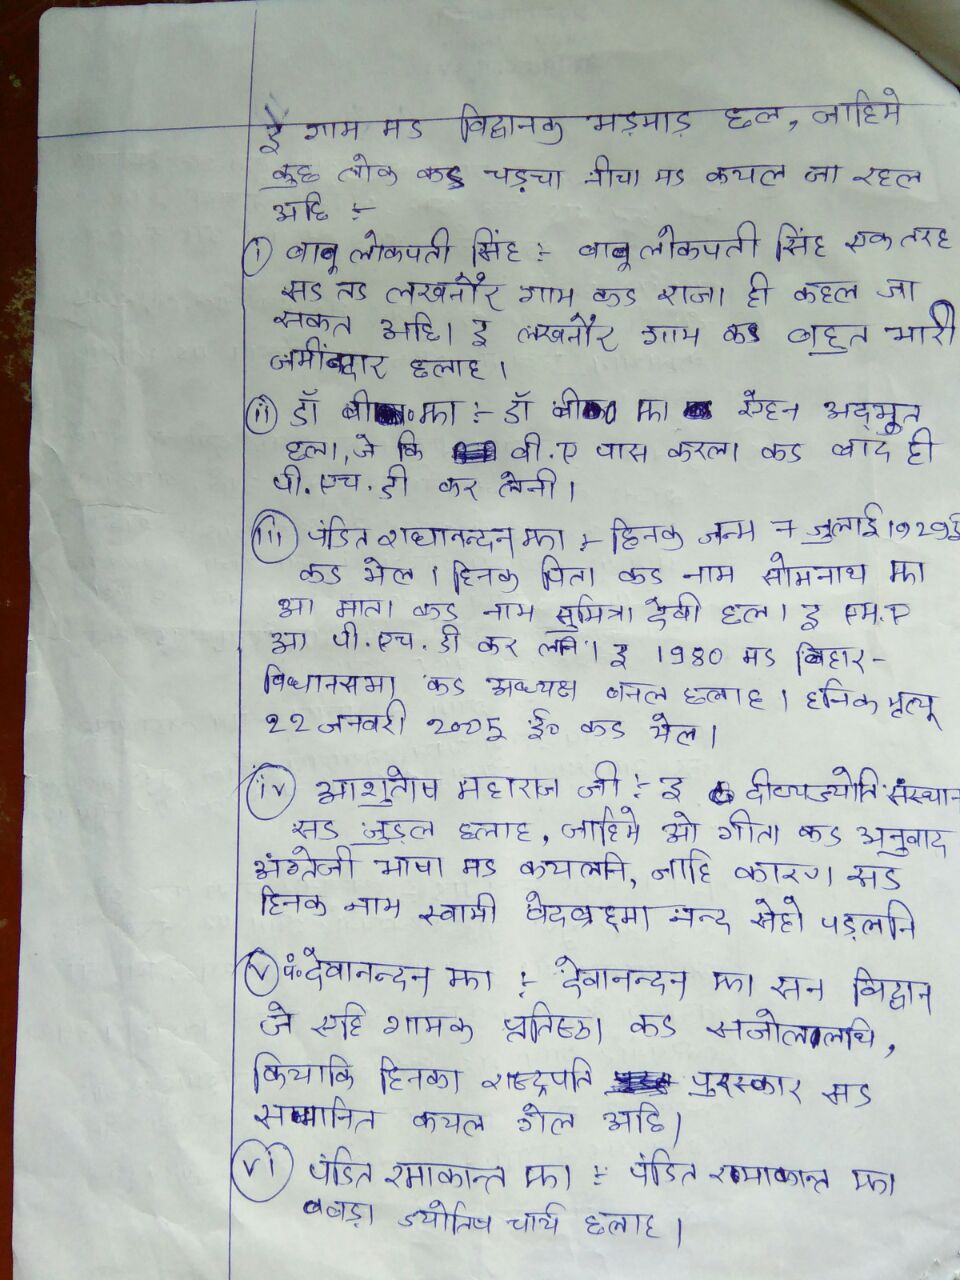 ई गाम मड विद्वानक भड़माड़ छल, जाहिमे
कुछ लोक कड चड़चा नीचा मड कयल जा रहल
अछि :-
(i) बाबू लोकपती सिंह :- बाबू लोकपती सिंह एक तरह
सड तड लखनौर गाम कड राजा ही कहल जा
सकत अछि। इ लखनौर गाम कड बहुत भारी
जमींदार छलाह।
(ii) डॉ बी० झा :- डॉ बी० झा ऐहन अद्भुत
छला, जे कि बी.ए पास करला कड बाद ही
पी.एच.डी कर लेनी।
(iii) पंडित राधानन्दन झा :- हिनक जन्म 7 जुलाई 1929ई
कड भेल। हिनक पिता कड नाम सोमनाथ झा
आ माता कड नाम सुमित्रा देवी छल। इ एम.ए
आ पी.एच.डी कर लनि। इ 1980 मड बिहार-
विधानसभा कड अध्यक्ष बनल छलाह। हनिक मृत्यू
22 जनवरी 2005 ई० कड भेल।
(iv) आशुतोष महाराज जी :- इ दीव्यज्योति संस्थान
सड जुड़ल छलाह, जाहिमे ओ गीता कड अनुवाद
अंग्रेजी भाषा मड कयलनि, जाहि कारण सड
हिनक नाम स्वामी वेदब्रह्मा नन्द सेहो पड़लनि
(v) पं० देवानन्दन झा :- देवानन्दन झा सन विद्वान
जे एहि गामक प्रतिष्ठा कड सजोलालथि,
कियाकि हिनका राष्ट्रपति पुरस्कार सड
सम्मानित कयल गेल अछि।
(vi) पंडित रमाकान्त झा :- पंडित रमाकान्त झा
बड़ा ज्योतिष चार्य छलाह।